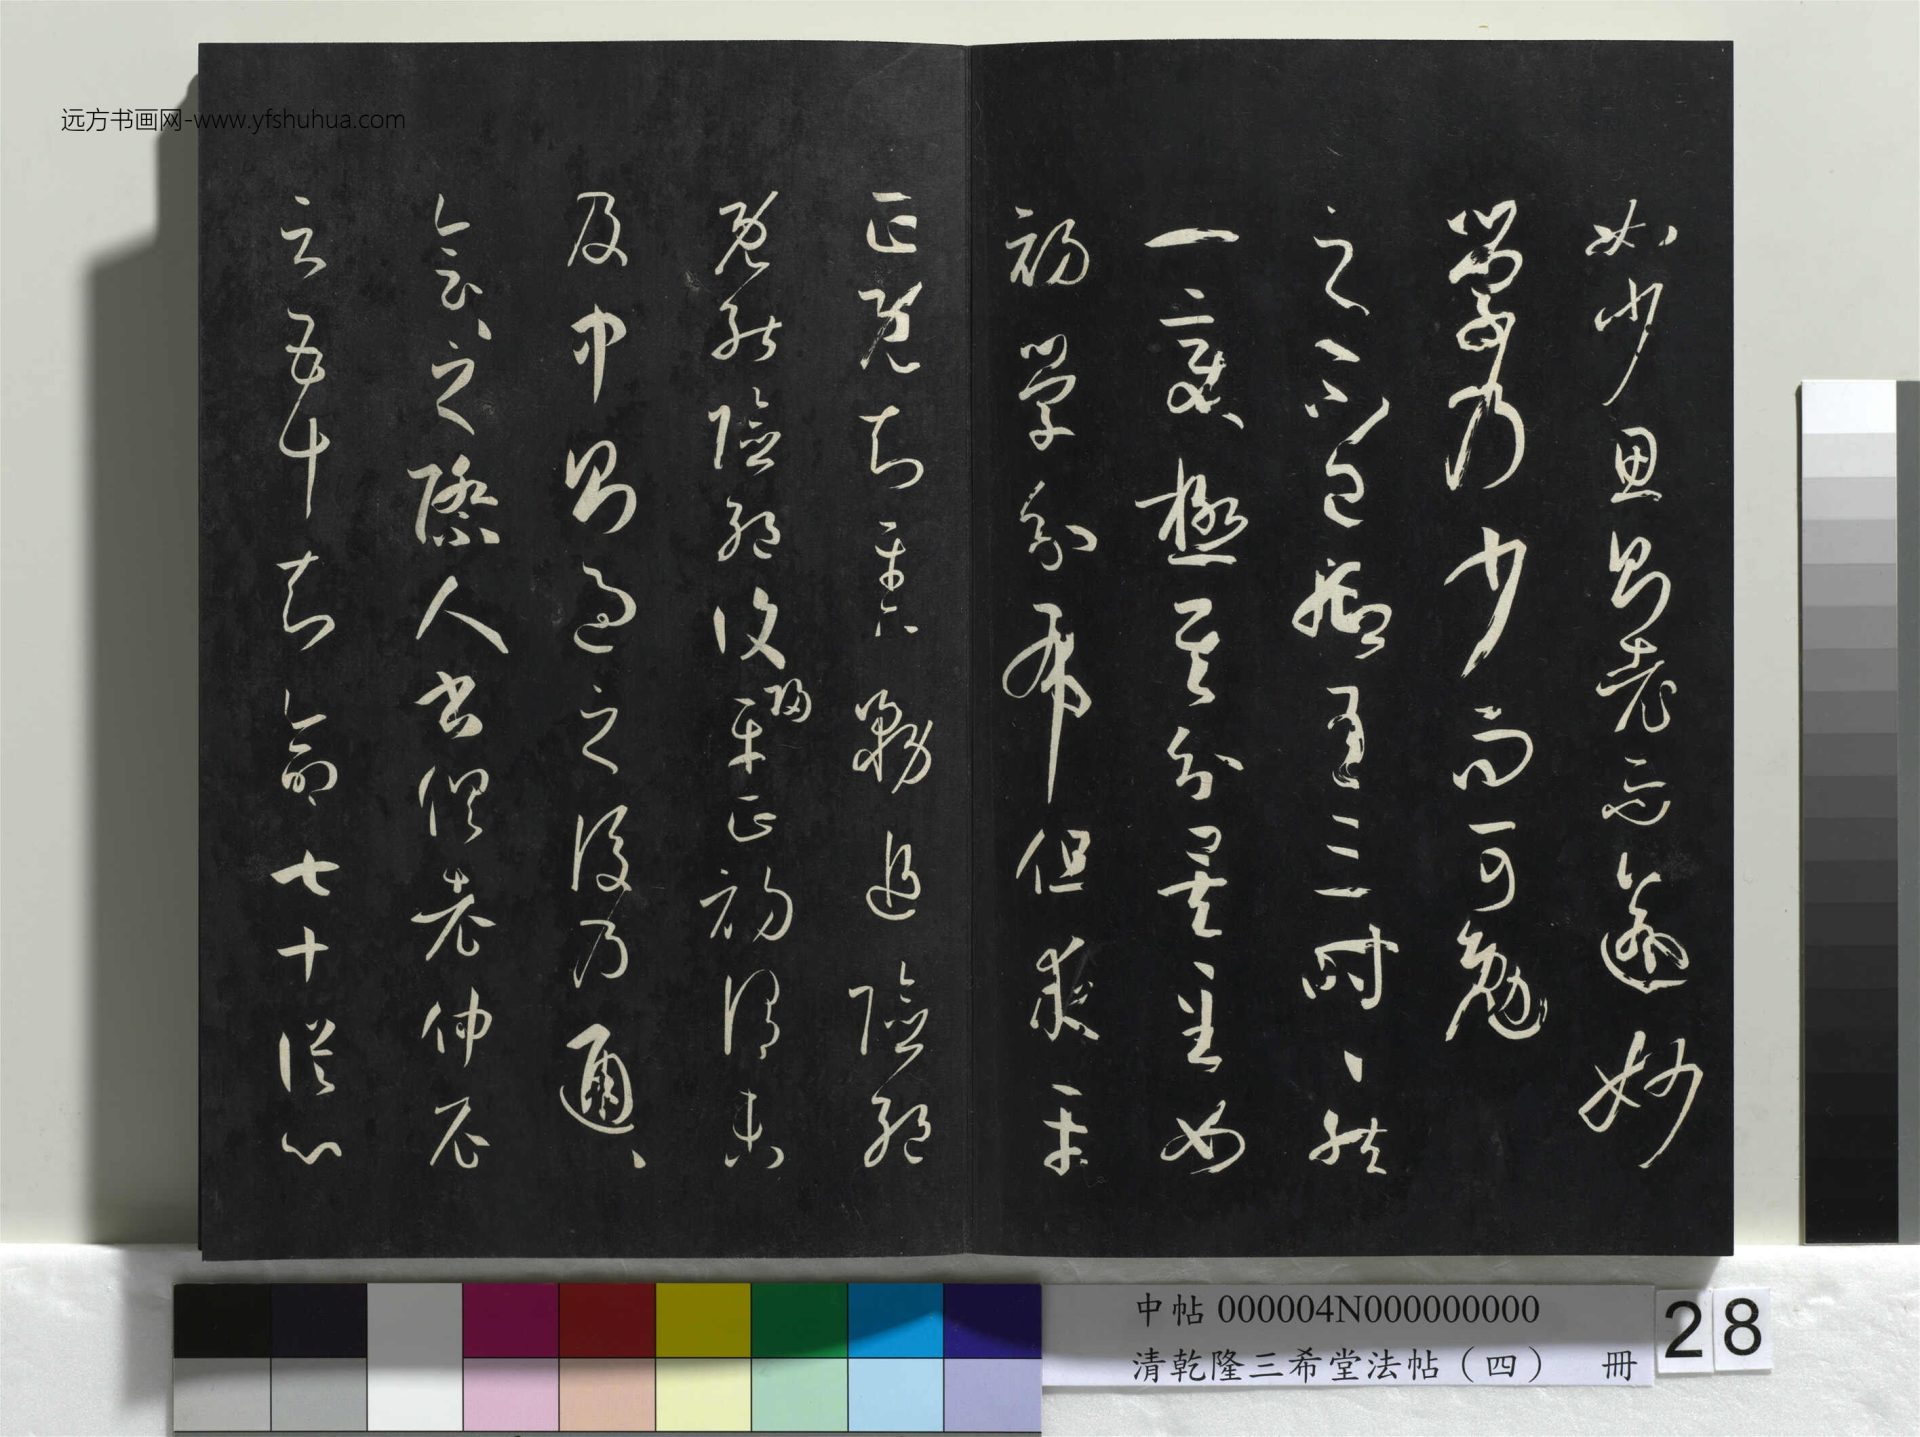 远方书画网-www.yfshuhua.com
如少思則老而逾妙
學乃少而可勉
之不已抑有三時〻然
一變極其分矣至如
初學分布但求平
正既知平正務追險絶
既能險絶復歸平正初謂未
及中則過之後乃通〻
會〻之際人書俱老仲尼
云五十知命七十從心
中帖 000004N000000000
清乾隆三希堂法帖（四） 冊
28